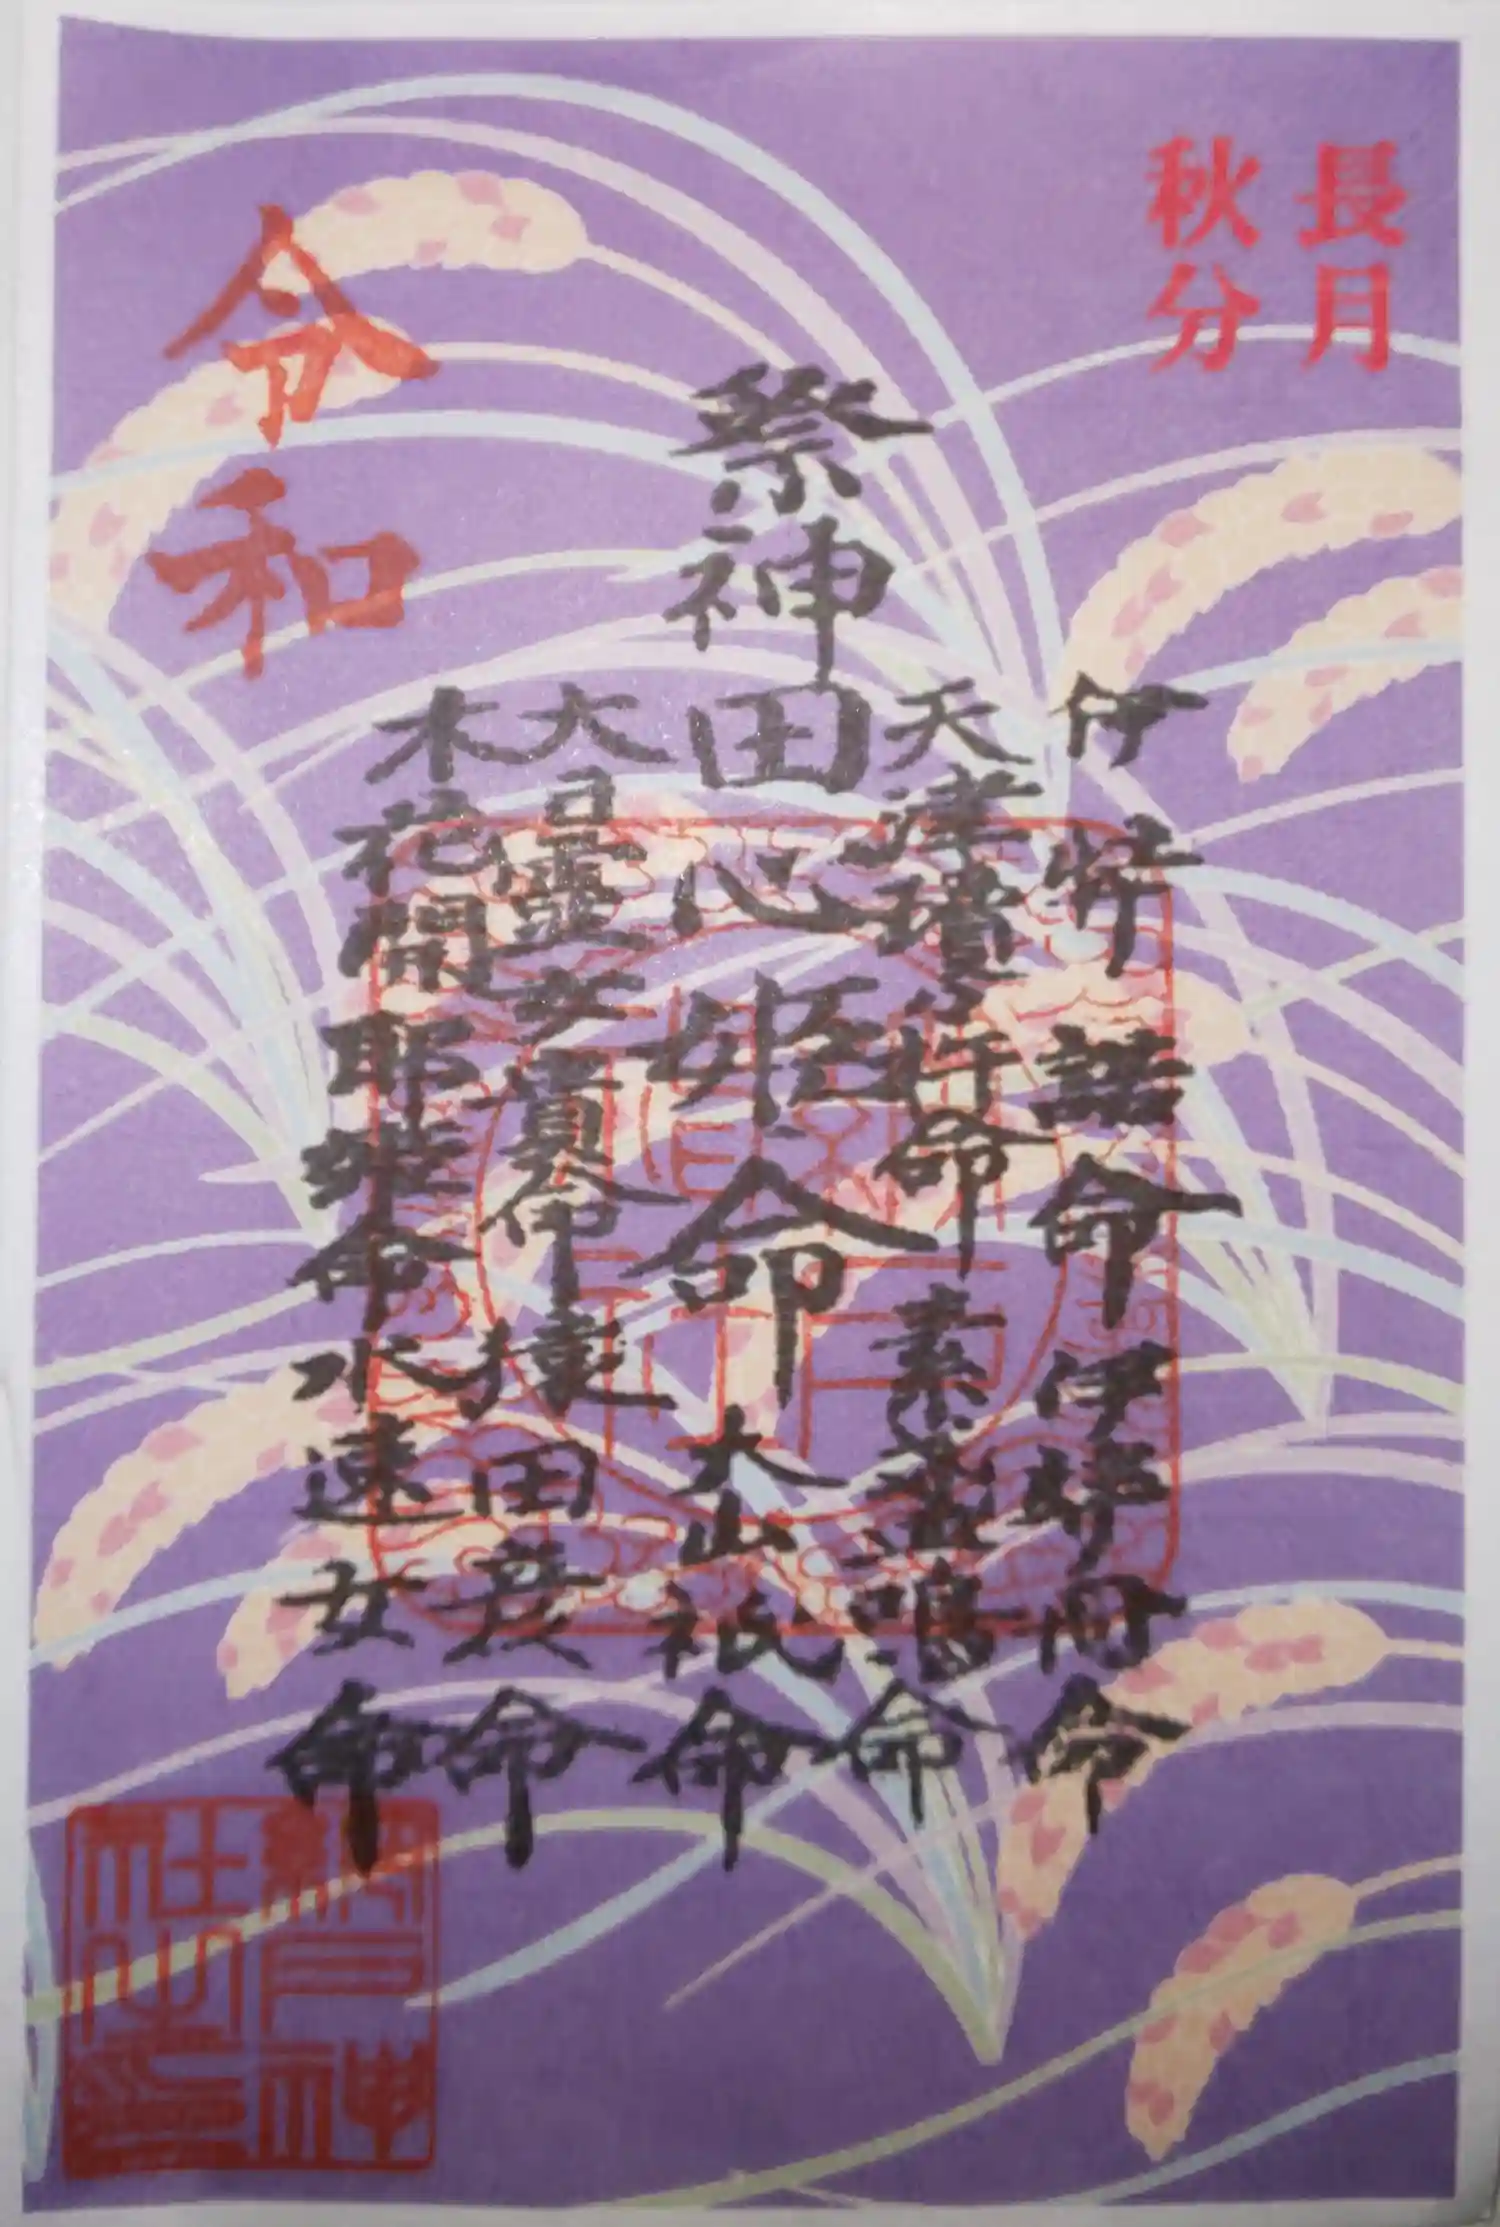 長月
秋分
伊弉諾命 伊弉冊命
天津瓊々杵命 素盞鳴命
祭神 田心姫命 大山祇命
大日孁女貴命 猿田彦命
木花開耶姫命 水速女命
令和